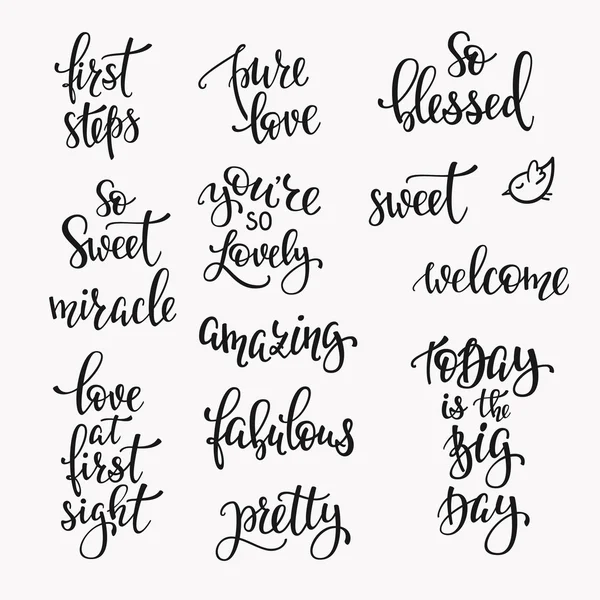 first
steps
So
Sweet
miracle
love
at
first
sight
pure
love
you're
so
Lovely
amazing
fabulous
pretty
So
blessed
sweet
welcome
ToDAy
is the
Big
Day